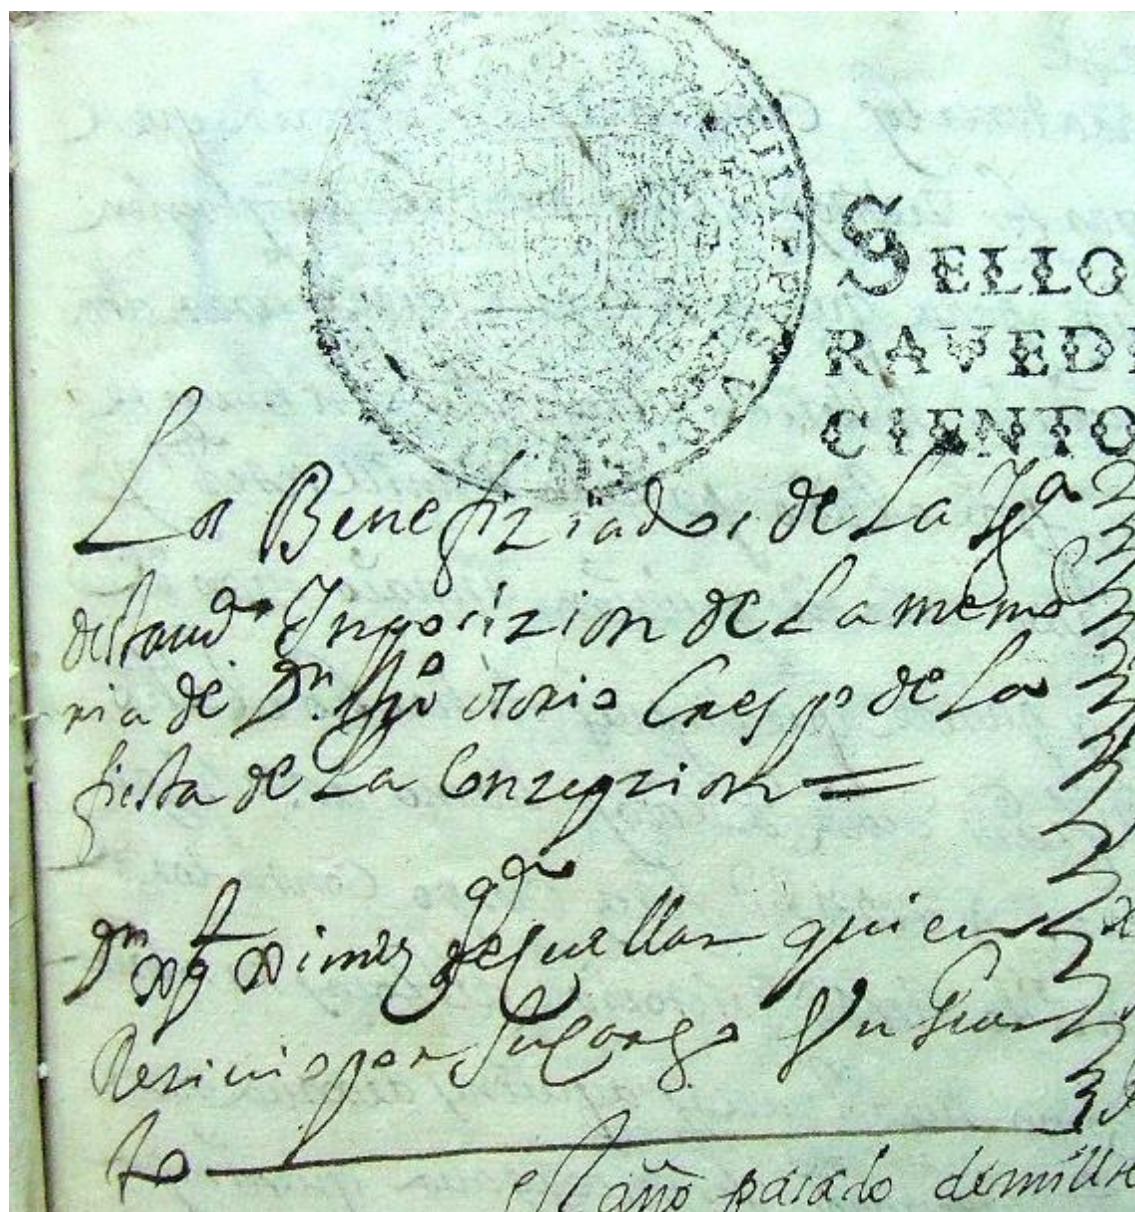 PHILIPPUS V D G
SELLO
RAVEDI
CIENTO
Los Benefiziados, de La Yga
desta ud Inposizion de La memo
ria de Dn osorio Crespo de La
fiesta de La Conzepzion =
Dn ximez de Cuellar quien
Resiuio por su Cargo
to
año pasado de mill se